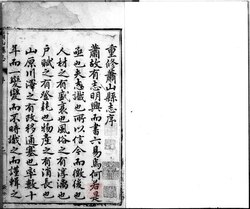 重修蕭山縣志序
蕭故有志明興而書六易焉何若是
亟也夫志識也所以信今而徵後也
人材之有盛衰也風俗之有淳漓也
戶賦之有登耗也物產之有消長也
山原川澤之有改移通塞也率數十
年而一變變而不時識之而謹輯之